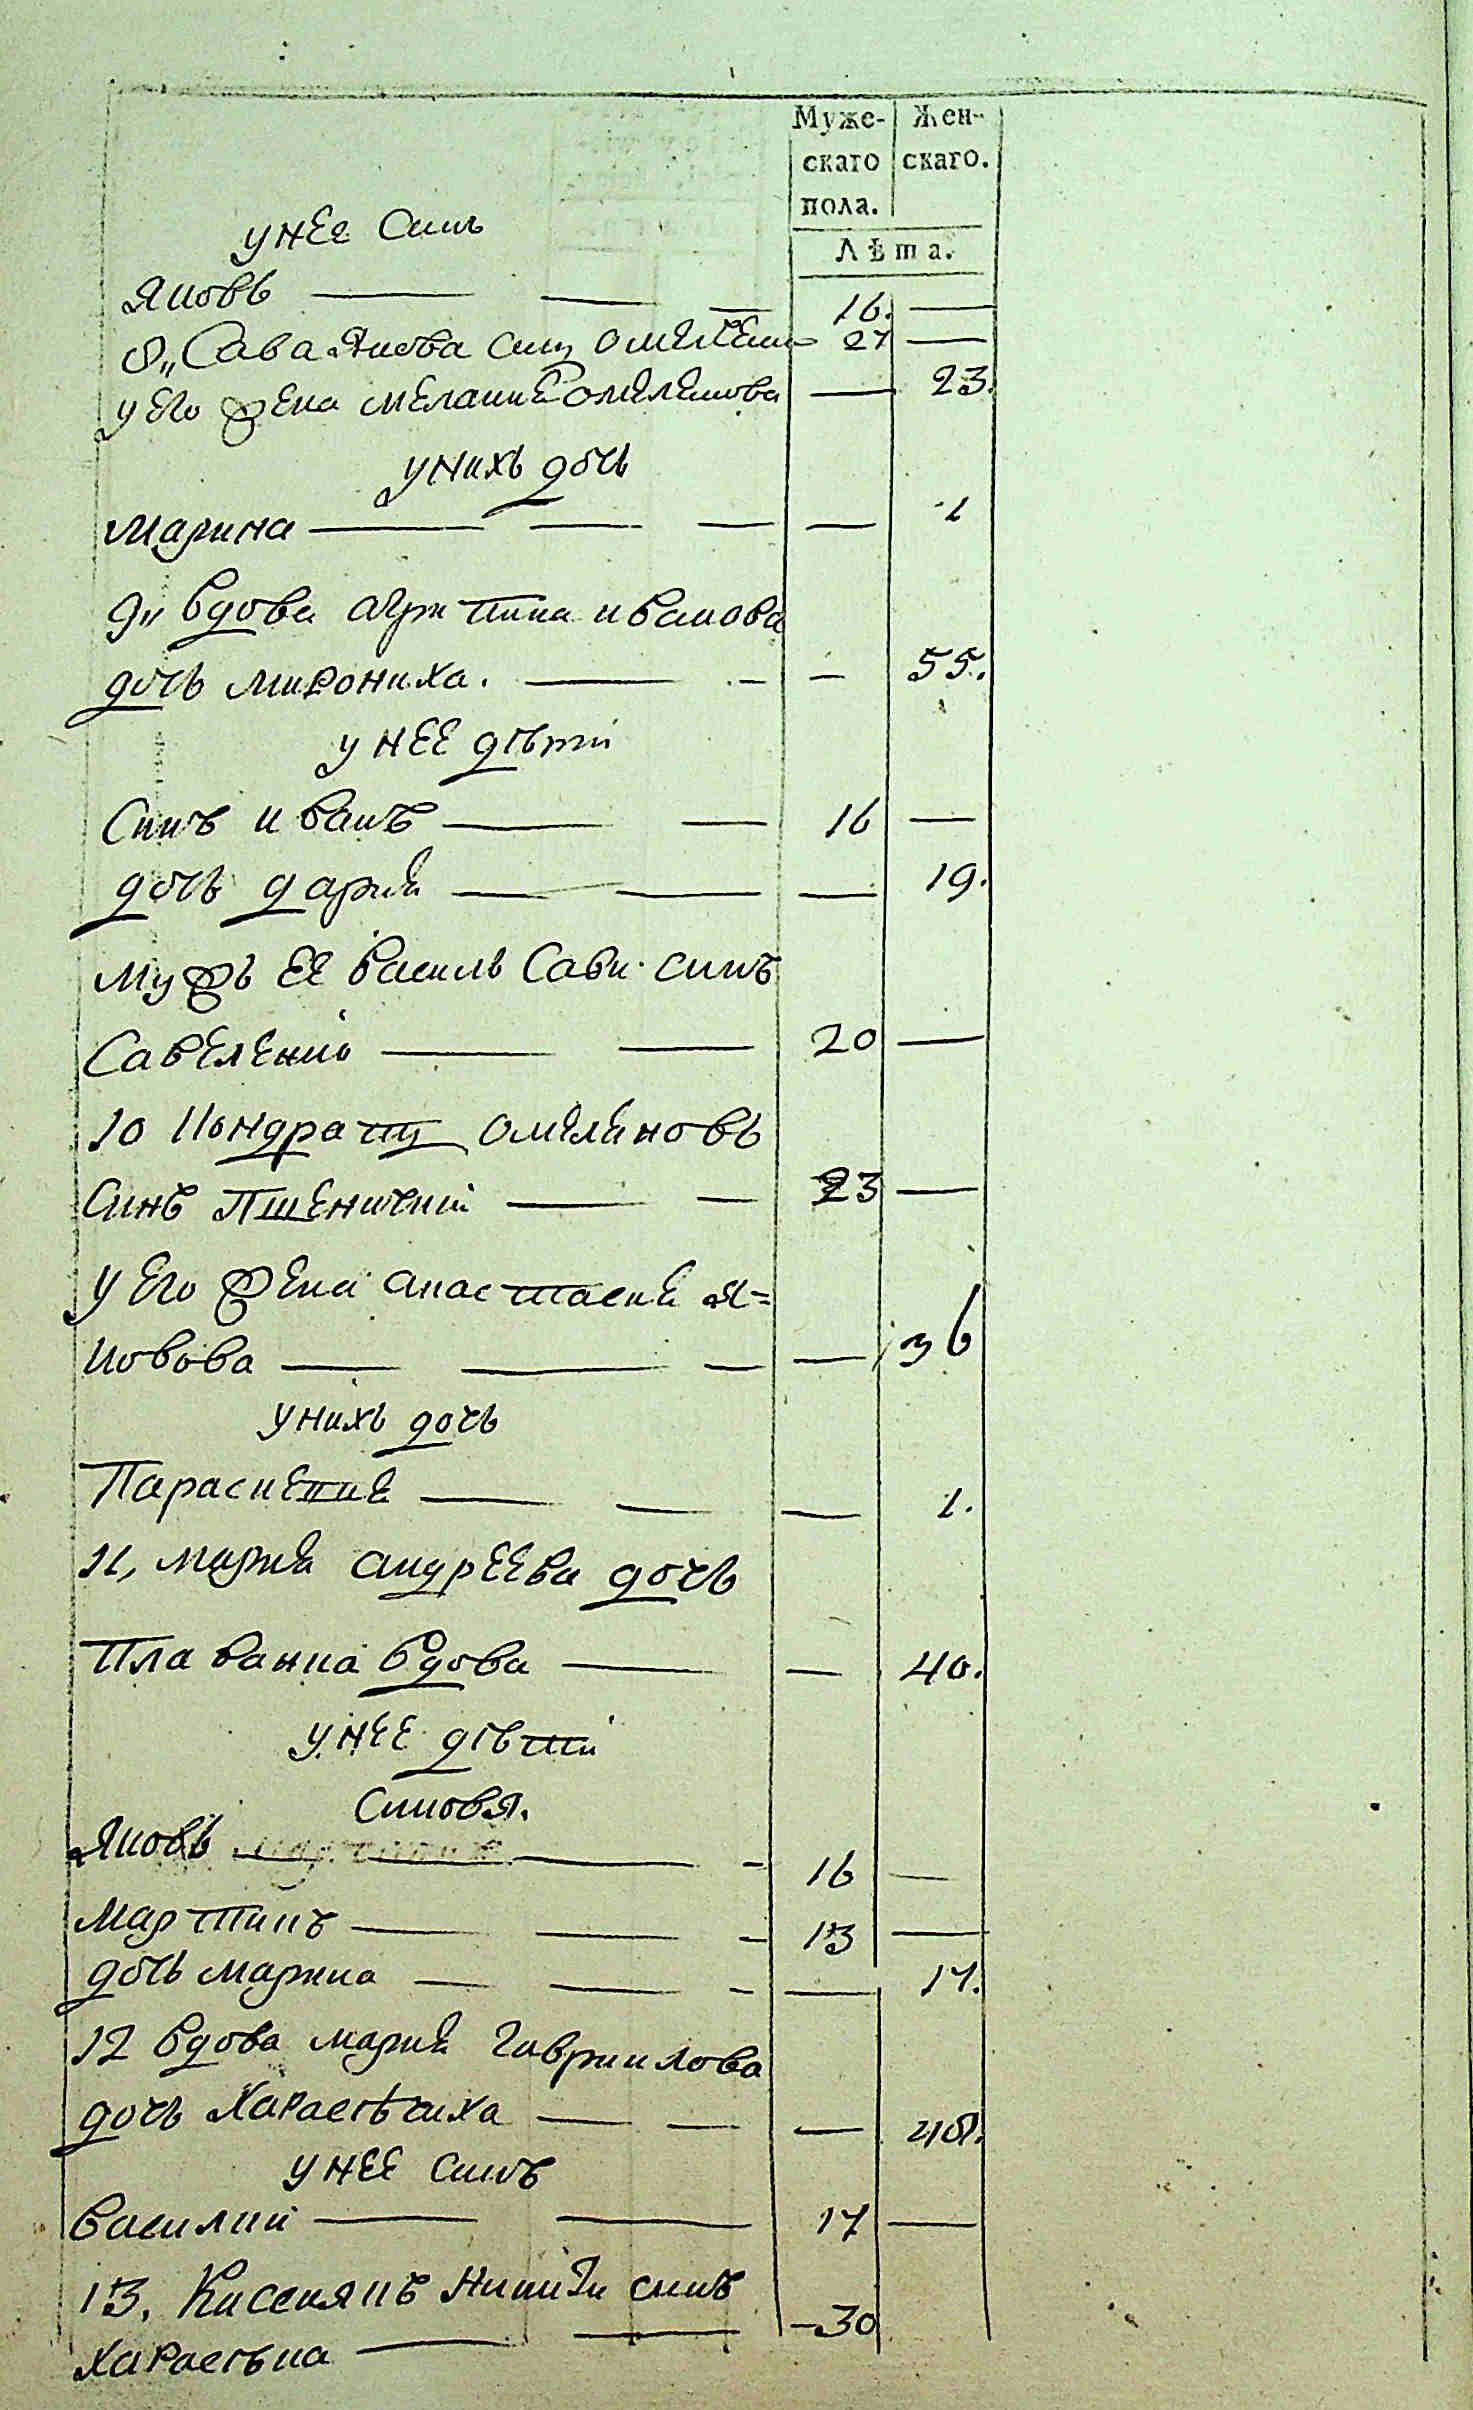 Муже- Жен-
скаго скаго.
пола.
Лѣта.
у нее синъ
Яковъ — — — 16. —
8„ Сава Якова синъ 27 —
у его жена Меланиѣ Омелянова — 23.
у нихъ дочь
Марина — — — — 1
9„ вдова Агрипина Иванова
дочь Мирониха. — — — 55.
у нее дѣти
Синъ Иванъ — — 16 —
дочь Дария — — — 19.
мужъ ее Василь Сави синъ
Савеление — — 20 —
10 Кондратъ Омеляновъ
Синъ Пшеничний — — 23 —
у его жена Анастасия Я-
ковова — — — — 36
у нихъ дочь
Параскевия — — — 1.
11, Мария Андреева дочь
Плаванка вдова — — 40.
у нее дѣти
Синовя.
Яковъ — — — — 16 —
Мартинъ — — — 13 —
дочь Марина — — — — 17.
12 вдова Мария Гавриилова
дочь Харасѣчиха — — — 40.
у нее синъ
Василий — — 17 —
13. Касеиянъ Никити синъ
Харасѣка — — — 30